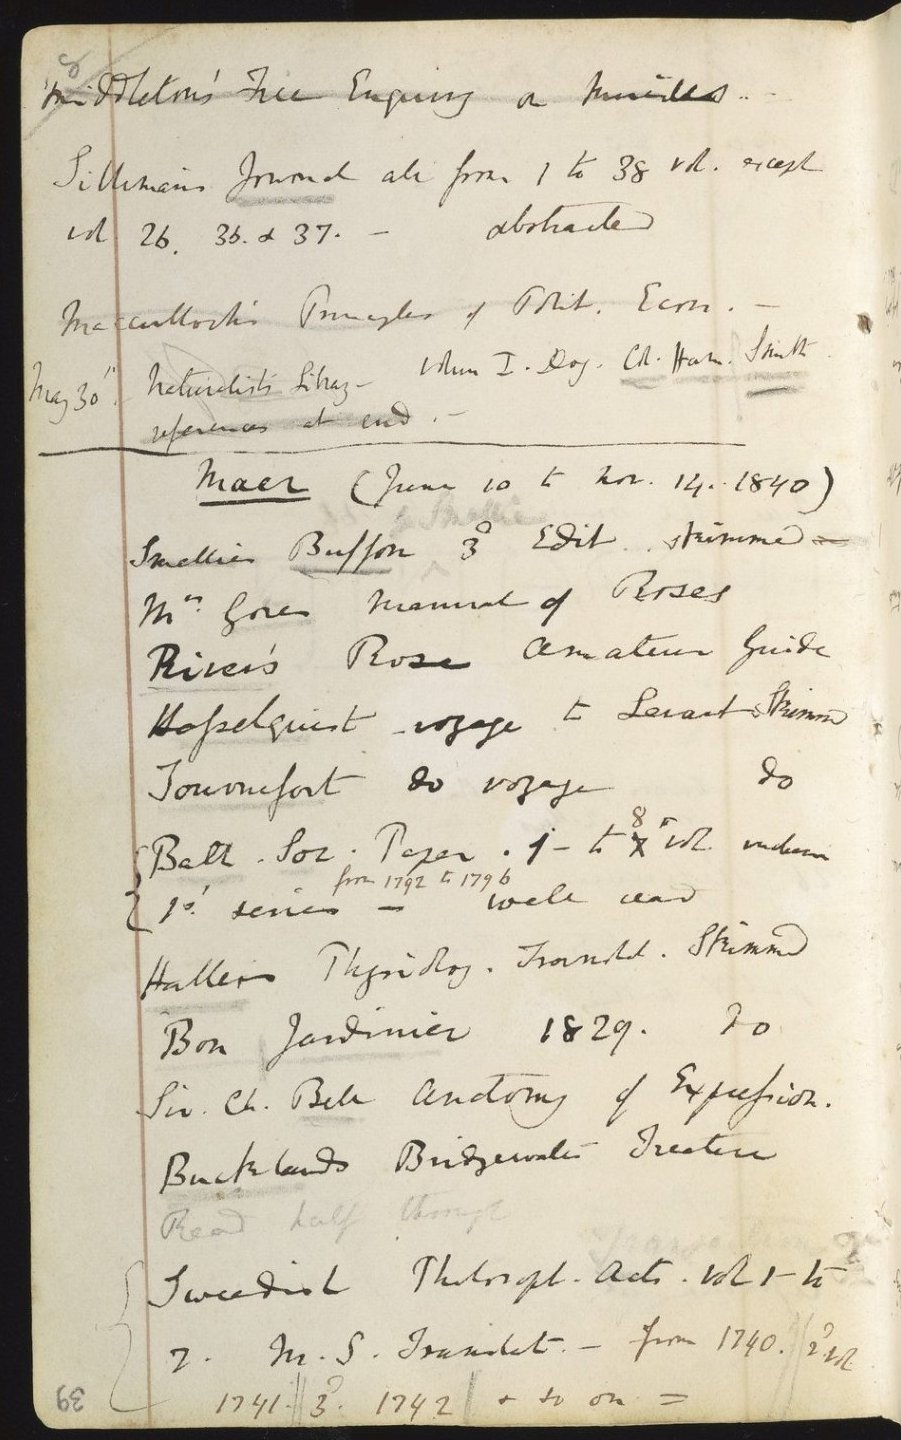 Middleton's Free Enquiry on Miracles -
Silliman's Journal all from 1 to 38 vol. except
vol 26. 36. & 37. - abstracted
Macculloch's Principles of Polit. Econ. -
May 30th. Naturalist's Library - Volum I. Dog. Col. Ham. Smith.
references at end. -
Maer (June 10 to Nov. 14. 1840)
Smellies Buffon 3d Edit. skimmed -
Mrs. Gores manual of Roses
River's Rose Amateur Guide
Hasselquist voyage to Levant Skimmed
Tournefort do voyage do
Bath. Soc. Paper. 1 - to 8th vol.
from 1792 to 1796
1st series - well read
Hallers Physiolog. Translat. Skimmed
Bon Jardinier 1829. do
Sir. Ch. Bell Anatomy of Expression.
Bucklands Bridgewater Treatise
Read half through
Swedish Philosoph. Acts. vol 1 - to
7. M.S. Translat. - from 1740. 2d vol
1741. 3d. 1742 & so on =
39